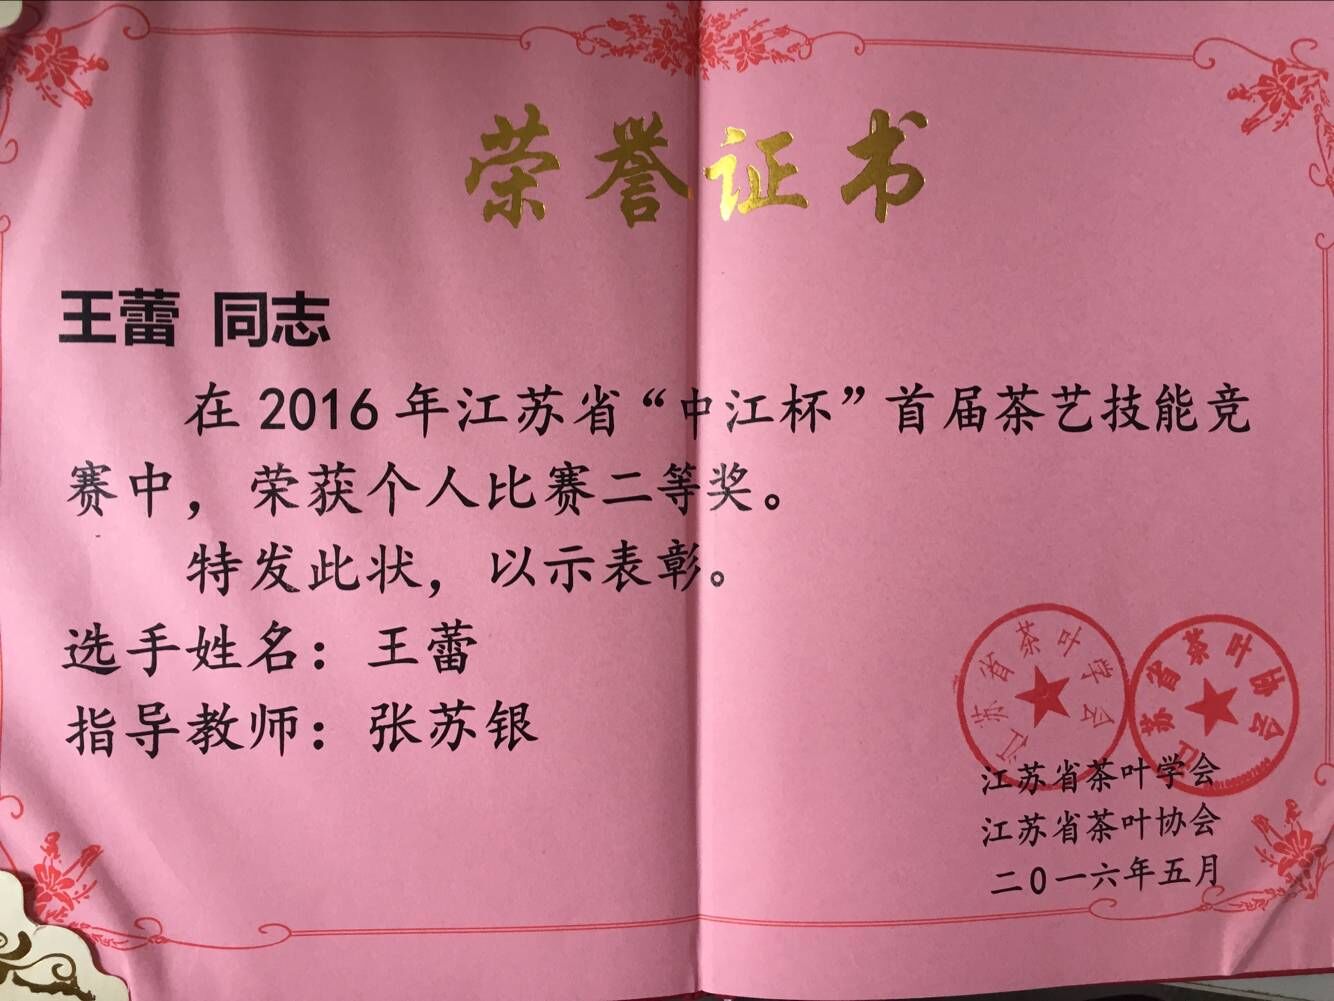 荣誉证书
王蕾 同志
在 2016 年江苏省“中江杯”首届茶艺技能竞
赛中，荣获个人比赛二等奖。
特发此状，以示表彰。
选手姓名：王蕾
指导教师：张苏银
江苏省茶叶学会
江苏省茶叶协会
江苏省茶叶学会
江苏省茶叶协会
二0一六年五月